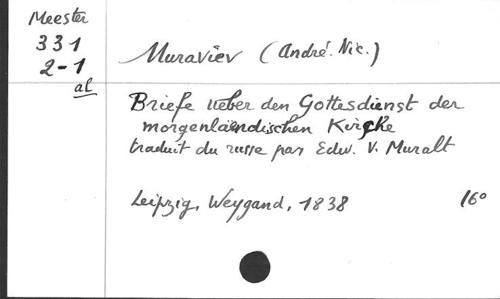 Meester
331
2-1
al
Muraviev (André. Nic.)
Briefe ueber den Gottesdienst der
morgenlaendischen Kirche
traduit du russe par Edw. V. Muralt
Leipzig, Weygand, 1838 16°